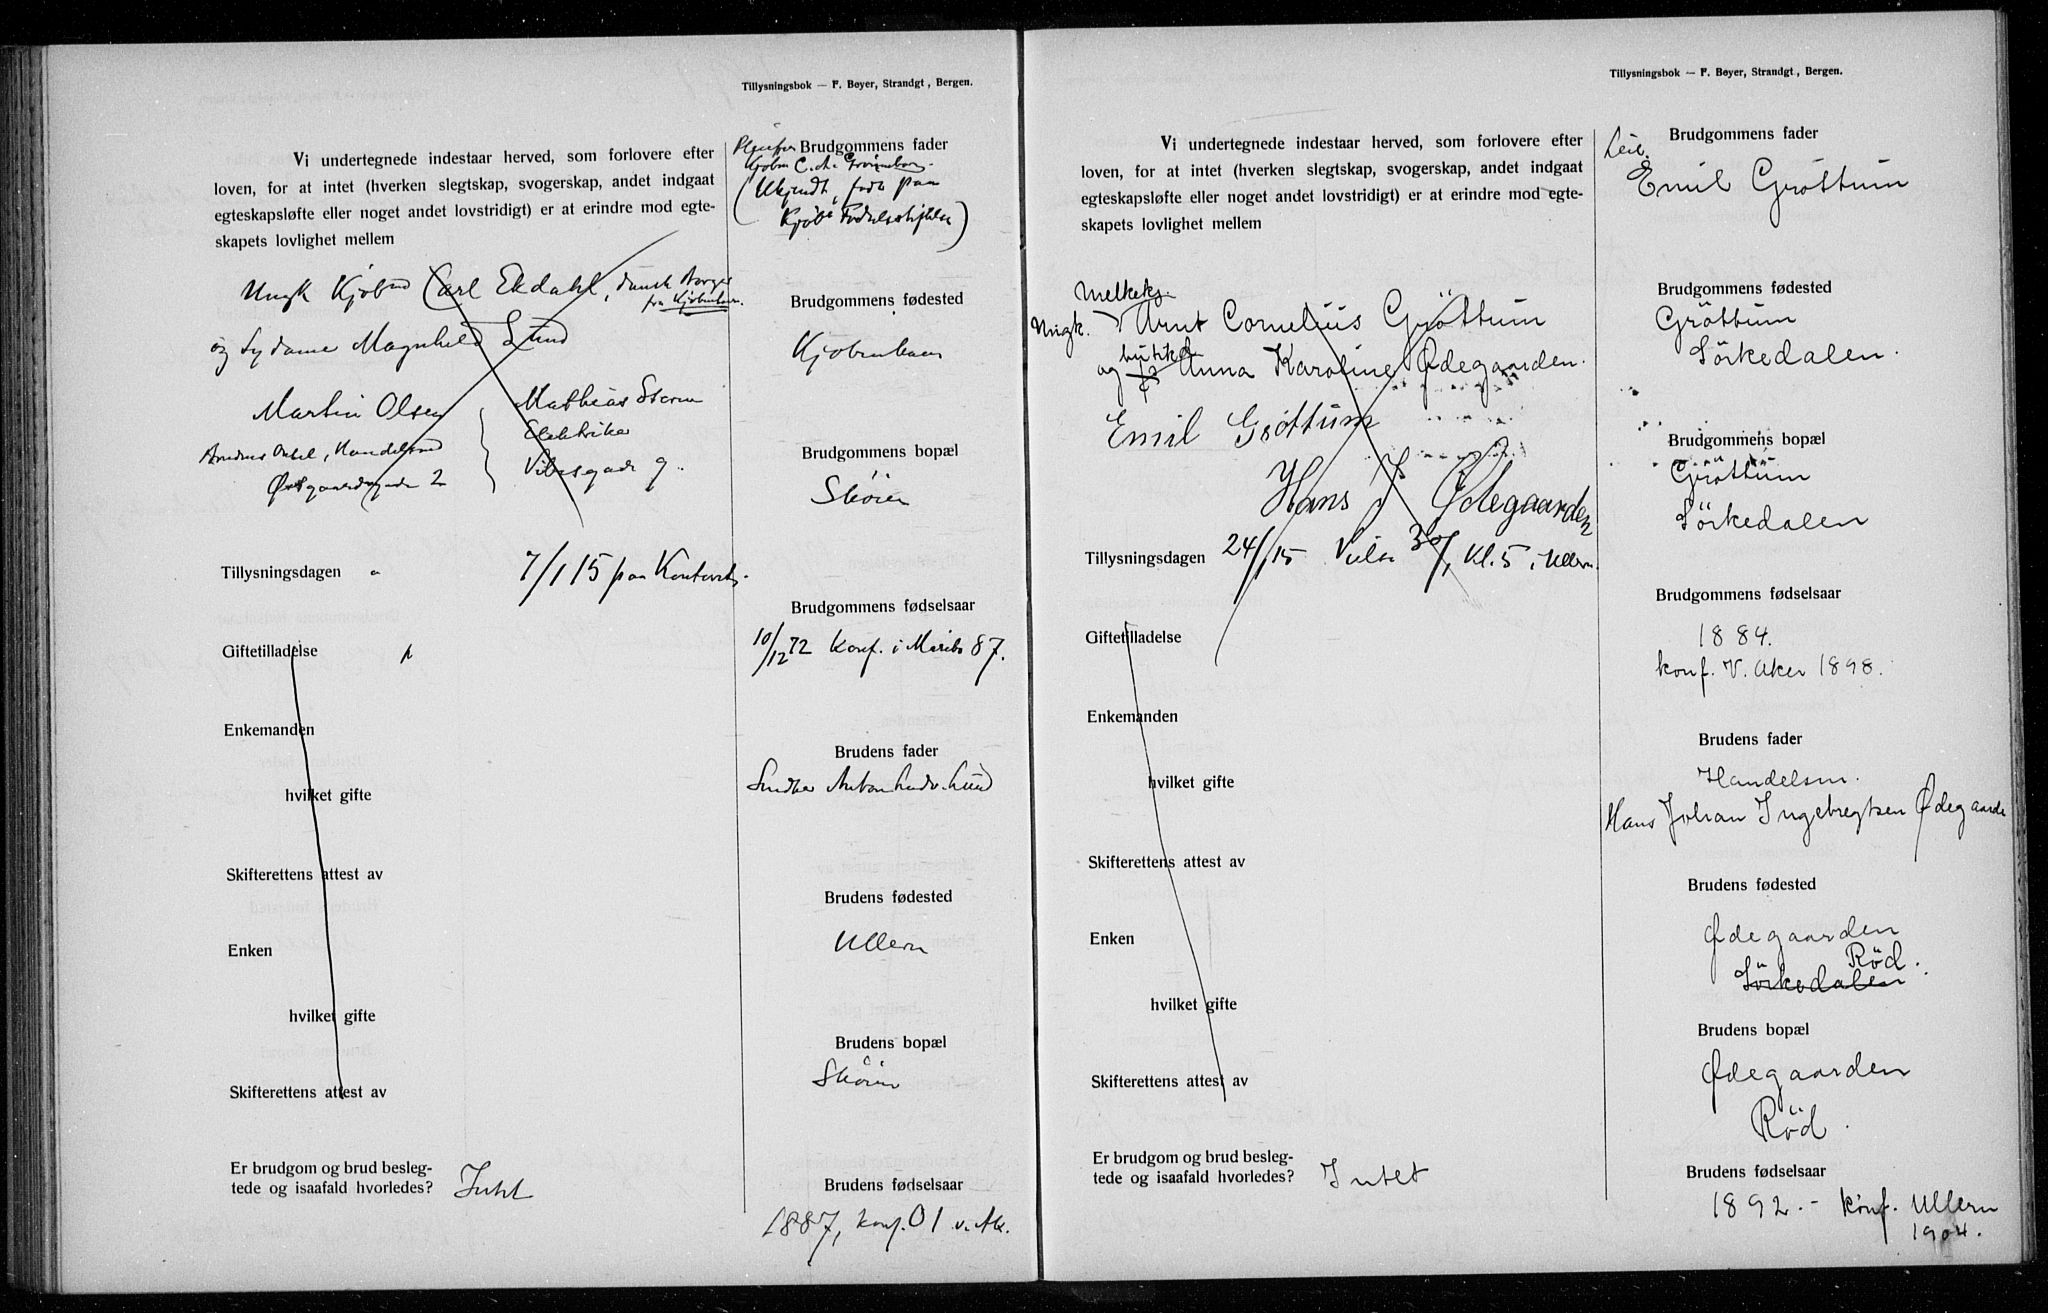 Tillysningsbok — F. Beyer, Strandgt, Bergen.
Vi undertegnede indestaar herved, som forlovere efter
loven, for at intet (hverken slegtskap, svogerskap, andet indgaat
egteskapsløfte eller noget andet lovstridigt) er at erindre mod egte-
skapets lovlighet mellem
Ungk Kjøbmd Carl Ekdahl, dansk Borger
fra Kjøbenhavn.
og Sydame Magnhild Lund
Martin Olsen
Brudens Onkel, Handelsmd
Østgaardsgade 2
Mathias Storm
Elektriker
Vibesgade 9.
Tillysningsdagen 7/1 15 paa Kontoret.
Giftetilladelse
Enkemanden
hvilket gifte
Skifterettens attest av
Enken
hvilket gifte
Skifterettens attest av
Er brudgom og brud besleg-
tede og isaafald hvorledes? Intet
Brudgommens fader
Pleiefar
Kjøbm C. A.
(Ukjendt, født paa
Kjøbh Fødselsstiftelse)
Brudgommens fødested
Kjøbenhavn
Brudgommens bopæl
Skøien
Brudgommens fødselsaar
10/12 72 Konf. i Maribo 87.
Brudens fader
Snedker Anton Ludv. Lund
Brudens fødested
Ullern
Brudens bopæl
Skøien
Brudens fødselsaar
1887, konf. 01 v. Ak.
Tillysningsbok — F. Beyer, Strandgt, Bergen.
Vi undertegnede indestaar herved, som forlovere efter
loven, for at intet (hverken slegtskap, svogerskap, andet indgaat
egteskapsløfte eller noget andet lovstridigt) er at erindre mod egte-
skapets lovlighet mellem
Melkekj.
Ungk. Arnt Cornelius Gröttum
butikd
og Anna Karoline Ødegaarden.
Emil Grøttum
Hans J Ødegaarden
Tillysningsdagen 24/1 15 Vielse 30/1 Kl. 5 i Ullern.
Giftetilladelse
Enkemanden
hvilket gifte
Skifterettens attest av
Enken
hvilket gifte
Skifterettens attest av
Er brudgom og brud besleg-
tede og isaafald hvorledes? Intet
Brudgommens fader
Leil.
Emil Gröttum
Brudgommens fødested
Gröttum
Sörkedalen.
Brudgommens bopæl
Gröttum
Sörkedalen
Brudgommens fødselsaar
1884.
konf. V. Aker 1898.
Brudens fader
Handelsm.
Hans Johan Ingebregtsen Ødegaarde
Brudens fødested
Ødegaarden
Röd.
Sörkedalen
Brudens bopæl
Ødegaarden
Röd.
Brudens fødselsaar
1892. - konf. Ullern
1904.